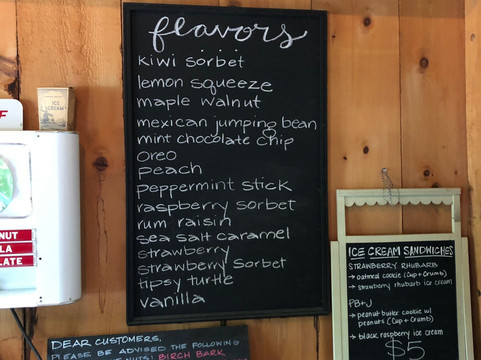 flavors
kiwi sorbet
lemon squeeze
maple walnut
mexican jumping bean
mint chocolate chip
oreo
peach
peppermint stick
raspberry sorbet
rum raisin
sea salt caramel
strawberry
strawberry sorbet
tipsy turtle
vanilla
ICE
CREAM
F
NUT
LA
LATE
DEAR CUSTOMERS,
PLEASE BE ADVISED THE FOLLOWING
NUTS! BIRCH BARK
ICE CREAM SANDWICHES
STRAWBERRY RHUBARB
→ oatmeal cookie (Cup + Crumb)
→ strawberry rhubarb ice cream
PB+J
→ peanut butter cookie w/
peanuts (Cup + Crumb)
→ black raspberry ice cream
$5